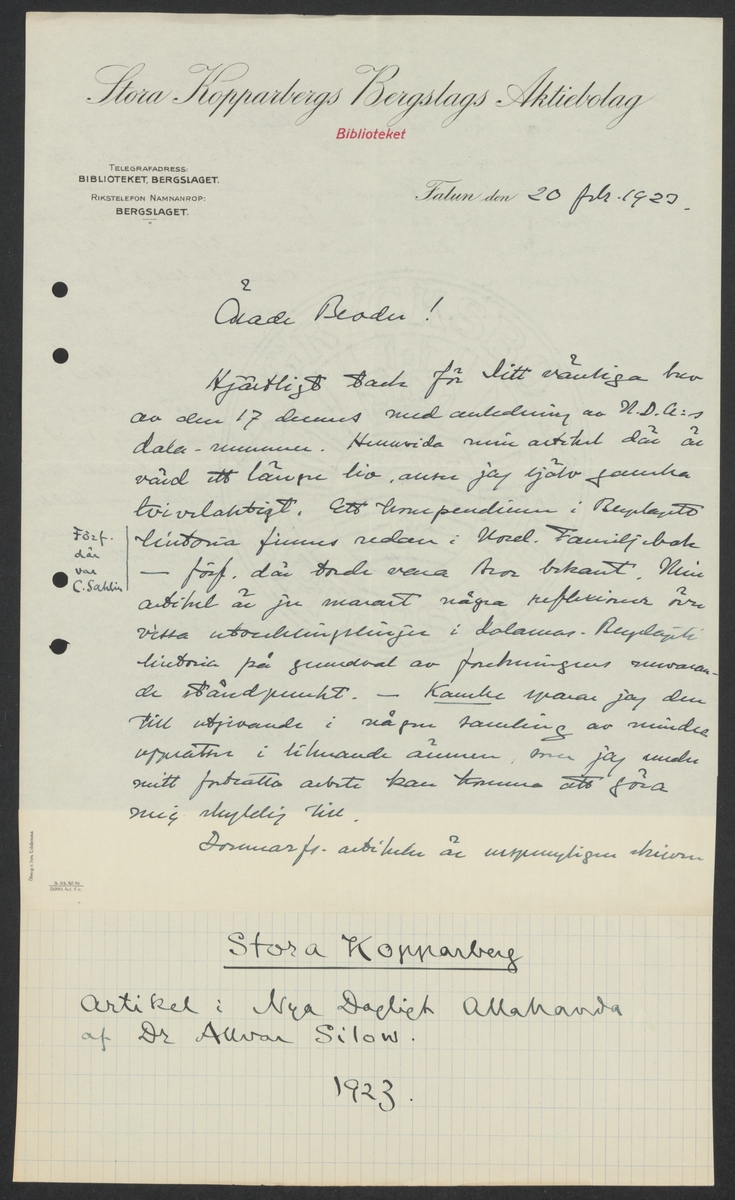 Stora Kopparbergs Bergslags Aktiebolag
Biblioteket
TELEGRAFADRESS:
BIBLIOTEKET, BERGSLAGET.
RIKSTELEFON NAMNANROP:
BERGSLAGET.
Falun den 20 febr. 1923.
Ärade Broder!
Hjärtligt tack för Ditt vänliga brev
av den 17 dennes med anledning av N.D.A:s
dala-nummer. Huruvida min artikel där är
värd ett längre liv, anser jag själv ganska
tvivelaktigt. Ett kompendium i Bergslagets
historia finnes redan i Nord. Familjebok
— förf. där torde vara Bror bekant. Min
artikel är ju snarast några reflexioner över
vissa utvecklingslinjer i Dalarnas-Bergslagets
historia på grundval av forskningens nuvaran-
de ståndpunkt. — Kanske sparar jag den
till utgivande i någon samling av mindre
uppsatser i liknande ämnen, som jag under
mitt fortsatta arbete kan komma att göra
mig skyldig till.
Domnarfs-artikeln är ursprungligen skriven
Förf.
där
var
C. Sahlin
Stora Kopparberg
Artikel i Nya Dagligt Allahanda
af Dr Allvar Silow.
1923.